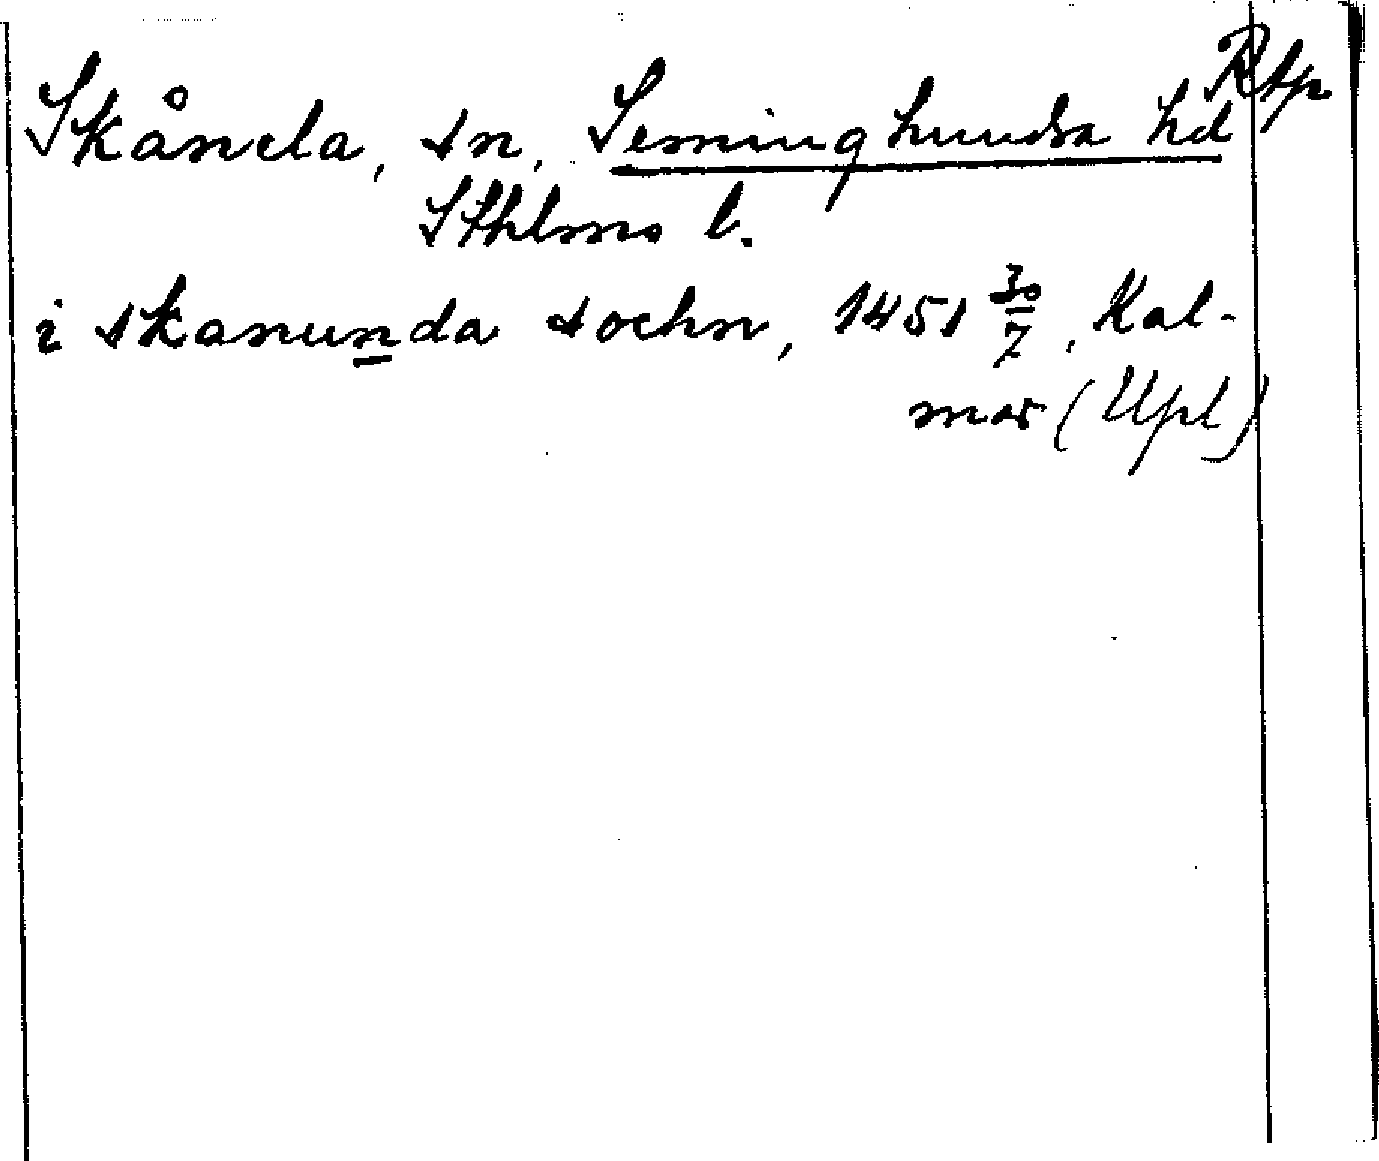 Rtp
Skånela, sn, Semminghundra hd
Sthlms l.
i skanunda sochn, 1451 30/7, Kal-
mar (Upl)